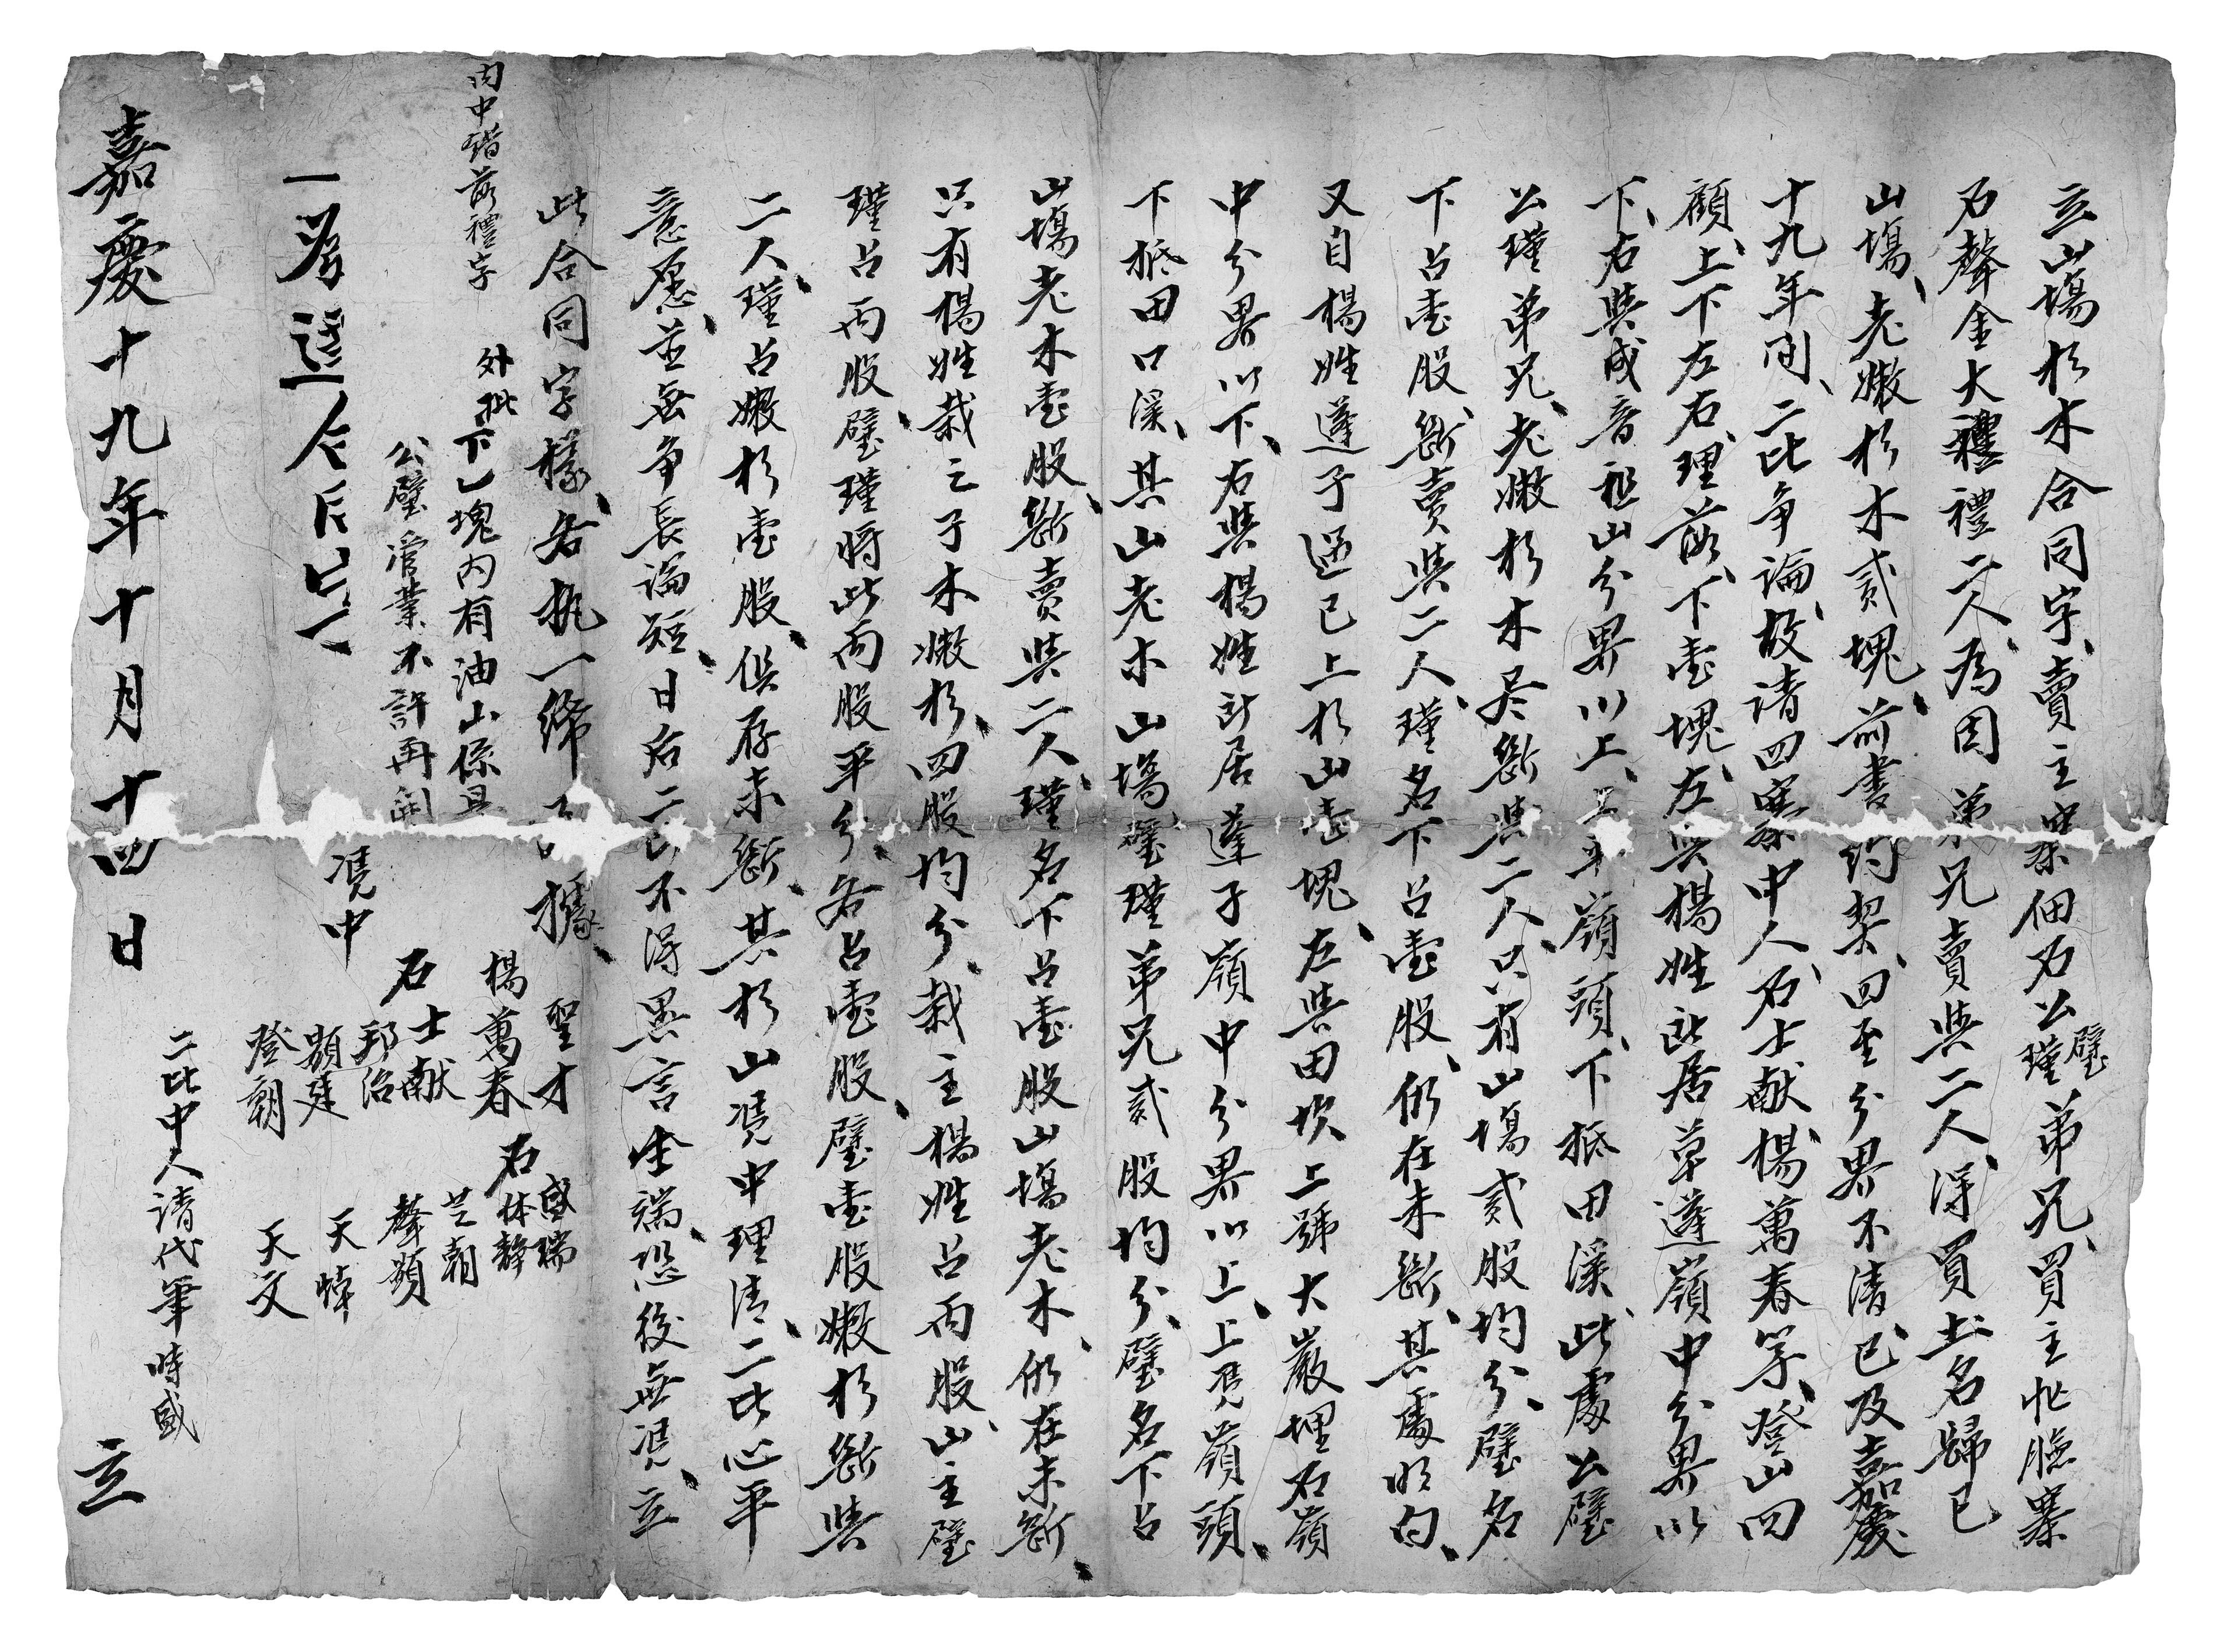 立山塲杉木合同字、賣主寨佃石公璧瑾弟兄、買主忚臉寨
石聲金大禮禮二人、為因弟兄賣與二人、淂買土名歸已
山塲、老嫩杉木貳塊、前書約契、四至分界不清、已及嘉慶
十九年间、二比争論、故请四寨中人石士献、楊萬春等、登山四
顧、上下左右、理落、下壹塊、左與楊姓所居草蓬嶺中分界以
下、右與成音祖山分界以上、上平嶺頭、下抵田溪、此處公璧
公瑾弟兄、老嫩杉木尽斷與二人、只有山塲貳股均分、璧名
下占壹股、斷賣與二人、瑾名下占壹股、仍在未斷、其處明白、
又自楊姓蓬子過已上杉山壹塊、左與田坎上號大巖埋石嶺
中分界以下、右與楊姓所居蓬子嶺中分界以上、上凭嶺頭、
下抵田口溪、其山老木山塲璧瑾弟兄貳股均分、璧名下占
山塲老木壹股、斷賣與二人、瑾名下占壹股山塲老木、仍在未斷、
只有楊姓栽之子木嫩杉、四股均分、栽主楊姓占両股、山主璧
瑾占両股、璧瑾将此両股平分、各占壹股、璧壹股嫩杉斷與
二人、瑾占嫩杉壹股、俱存未斷、其杉山凭中理清、二比心平
意愿、並無争長論短、日后二比不淂異言生端、恐後無凭、立
此合同字樣、各执一紙據、
内中錯落禮字
外批下乙塊内有油山係是
公璧管業不許再開
凭中
聖才
楊萬春
石士献
邦治
顕廷
登朝
石盛瑞
体静
芝朝
聲顕
天悼
天文
二比中人请代筆時盛
嘉慶十九年十月十四日立